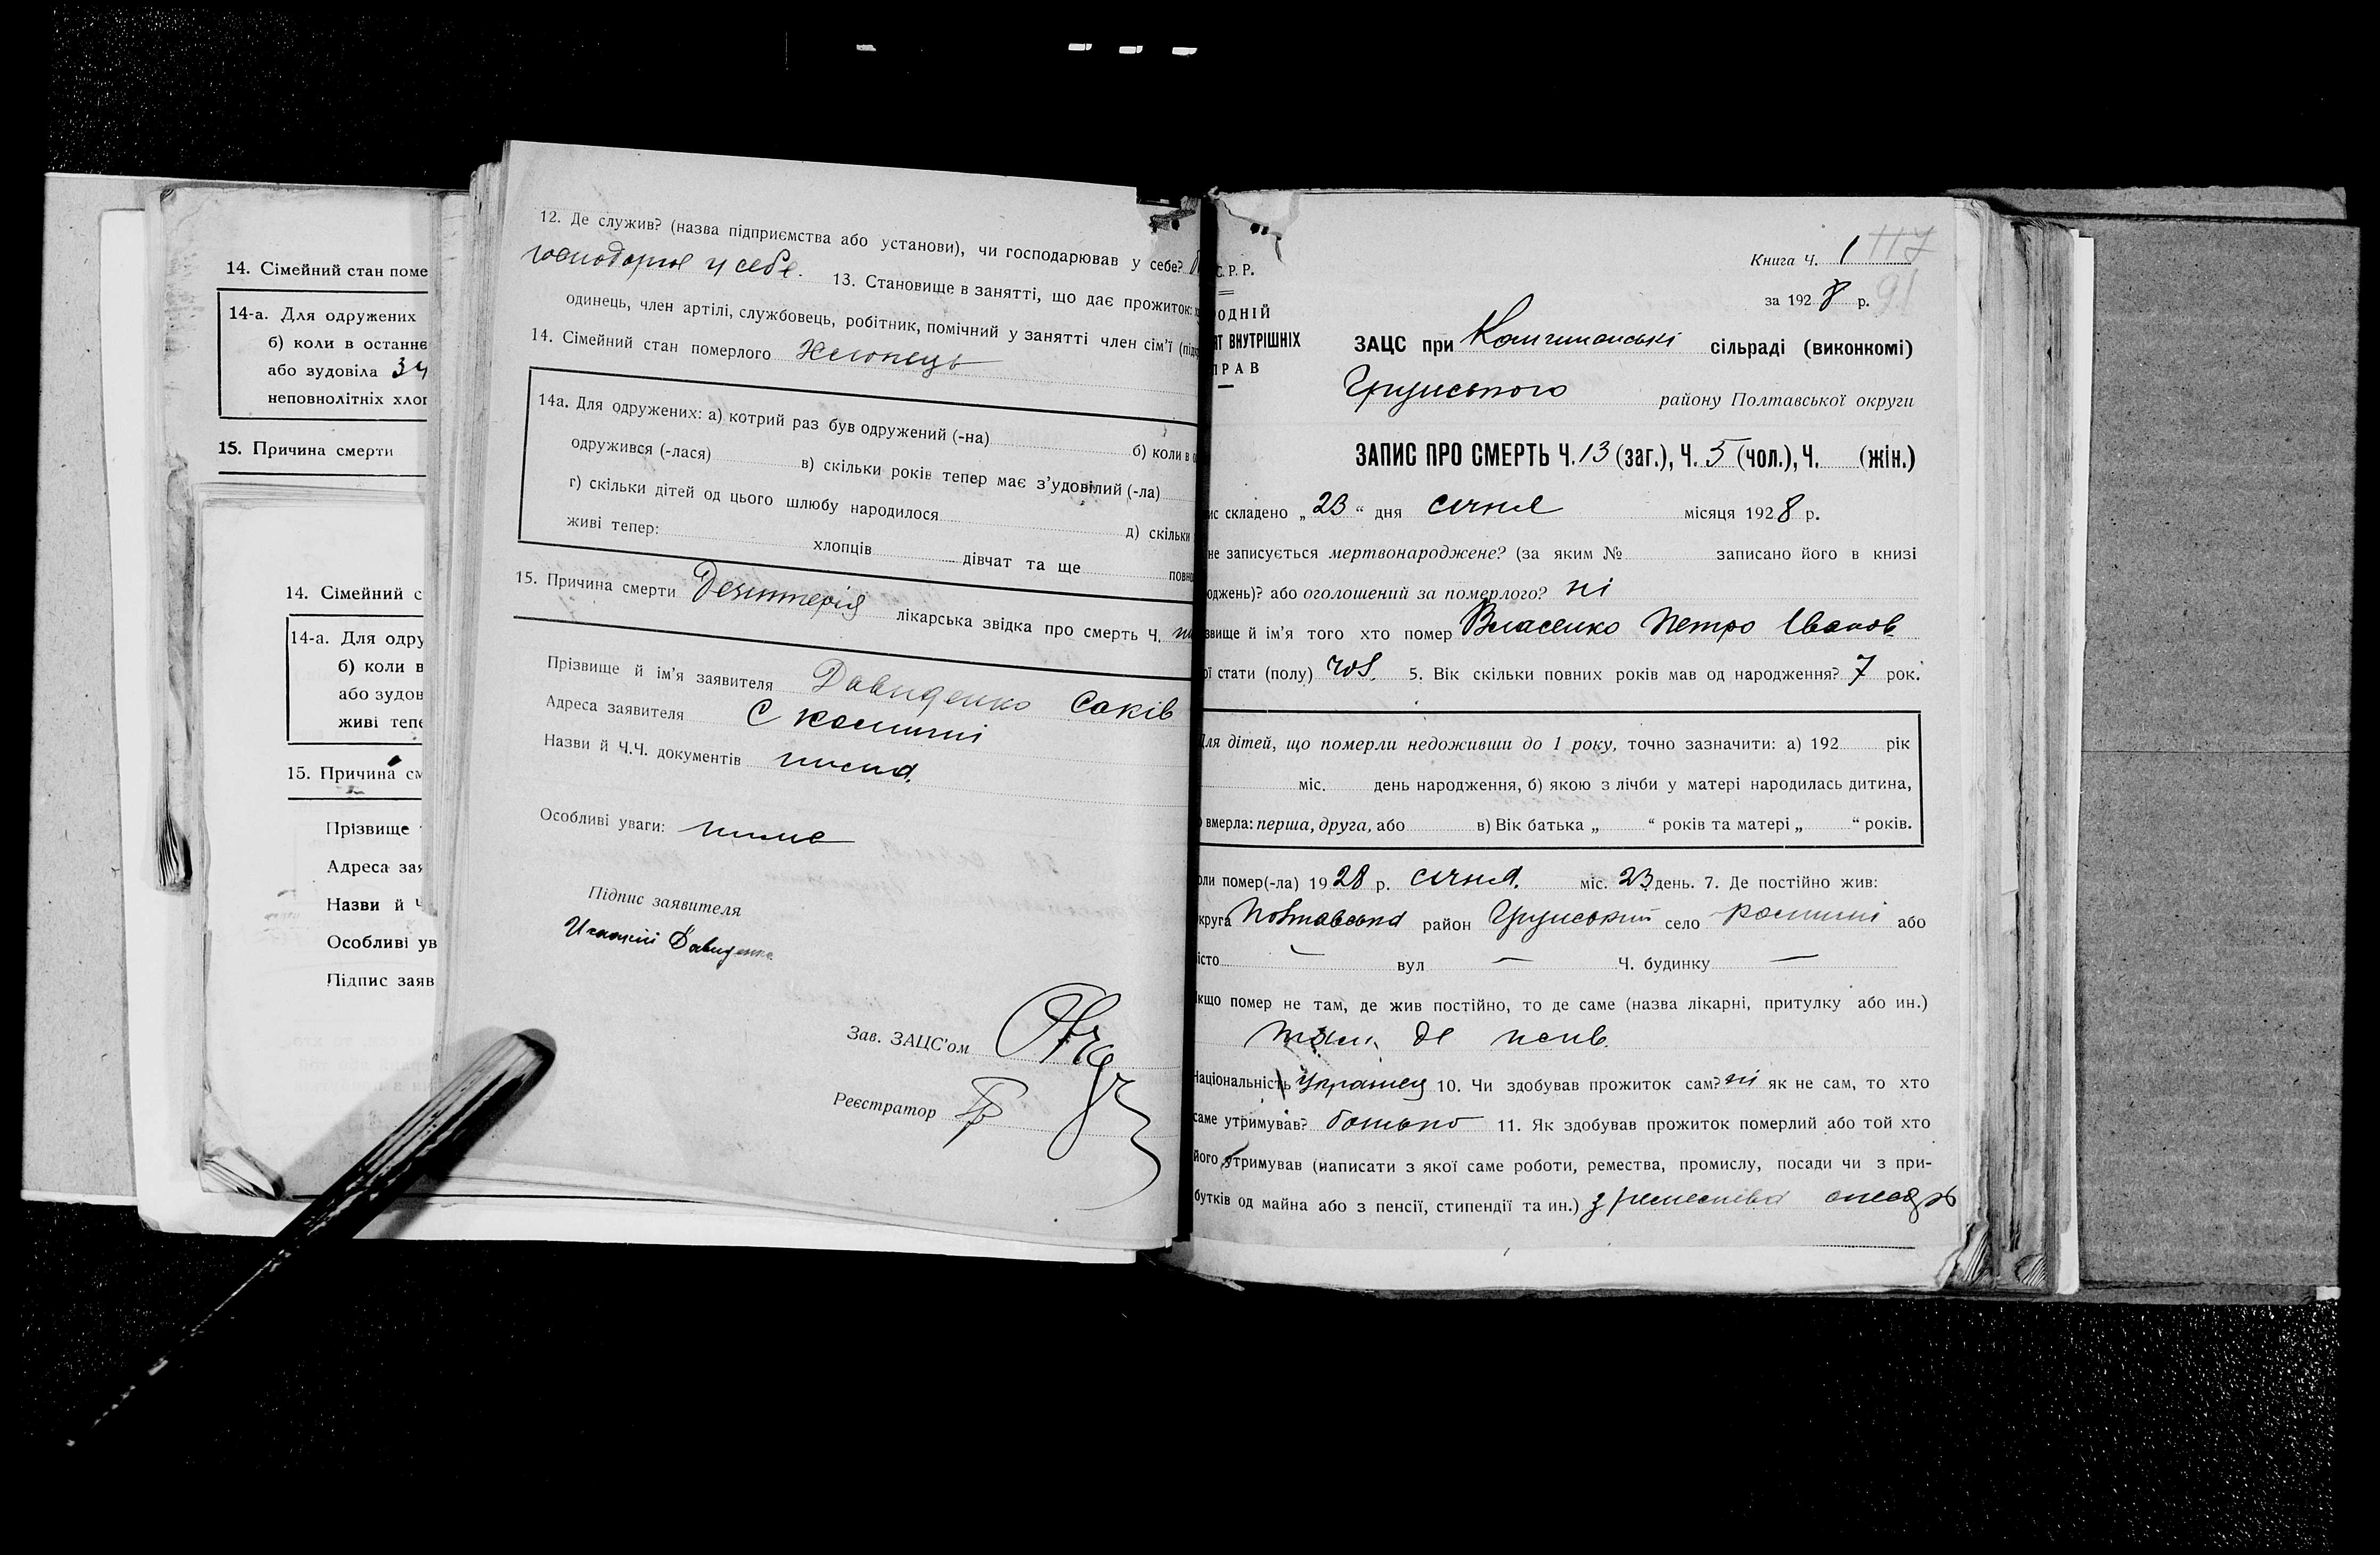 14. Сімейний стан поме
14-а. Для одружених
б) коли в останнє
або зудовіла
неповнолітніх хлоп
15. Причина смерти
14. Сімейний с
14-а. Для одру
б) коли в
або зудов
живі тепе
15. Причина см
Прізвище
Адреса зая
Назви й Ч
Особливі ув
Підпис заяв
12. Де служив? (назва підприємства або установи), чи господарював у себе?
господарює у себе. 13. Становище в занятті, що дає прожиток:
одинець, член артілі, службовець, робітник, помічний у занятті член сім'ї (під
14. Сімейний стан померлого Хлопець
14а. Для одружених: а) котрий раз був одружений (-на) б) коли в о
одружився (-лася) в) скільки років тепер має з'удовілий (-ла)
г) скільки дітей од цього шлюбу народилося д) скільки
живі тепер: хлопців дівчат та ще повно
15. Причина смерти Дезинтерія лікарська звідка про смерть Ч.
Прізвище й ім'я заявителя Давиденко Саків
Адреса заявителя С
Назви й Ч.Ч. документів
Особливі уваги: нима
Підпис заявителя
Давиденко
Зав. ЗАЦС'ом
Реєстратор
Книга Ч. 1 117
за 1928 р. 91
С.Р.Р.
ОДНІЙ
ЯТ ВНУТРІШНІХ
ПРАВ
ЗАЦС при сільраді (виконкомі)
Грунського району Полтавської округи
ЗАПИС ПРО СМЕРТЬ Ч. 13 (заг.), Ч. 5 (чол.), Ч. (жін.)
ис складено „23“ дня січня місяця 1928 р.
не записується мертвонароджене? (за яким № записано його в книзі
оджень)? або оголошений за померлого? ні
звище й ім'я того хто помер Власенко Петро Іванов
ої стати (полу) чол. 5. Вік скільки повних років мав од народження? 7 рок.
Для дітей, що померли недоживши до 1 року, точно зазначити: а) 192 рік
міс. день народження, б) якою з лічби у матері народилась дитина,
вмерла: перша, друга, або в) Вік батька „ “ років та матері „ “ років.
оли помер(-ла) 1928 р. січня. міс. 23 день. 7. Де постійно жив:
круга Полтавська район Грунський село або
істо — вул — Ч. будинку —
кщо помер не там, де жив постійно, то де саме (назва лікарні, притулку або ин.)
там де жив.
Національність Украинец 10. Чи здобував прожиток сам? ні як не сам, то хто
саме утримував? батько 11. Як здобував прожиток померлий або той хто
його утримував (написати з якої саме роботи, ремества, промислу, посади чи з при-
бутків од майна або з пенсії, стипендії та ин.) з